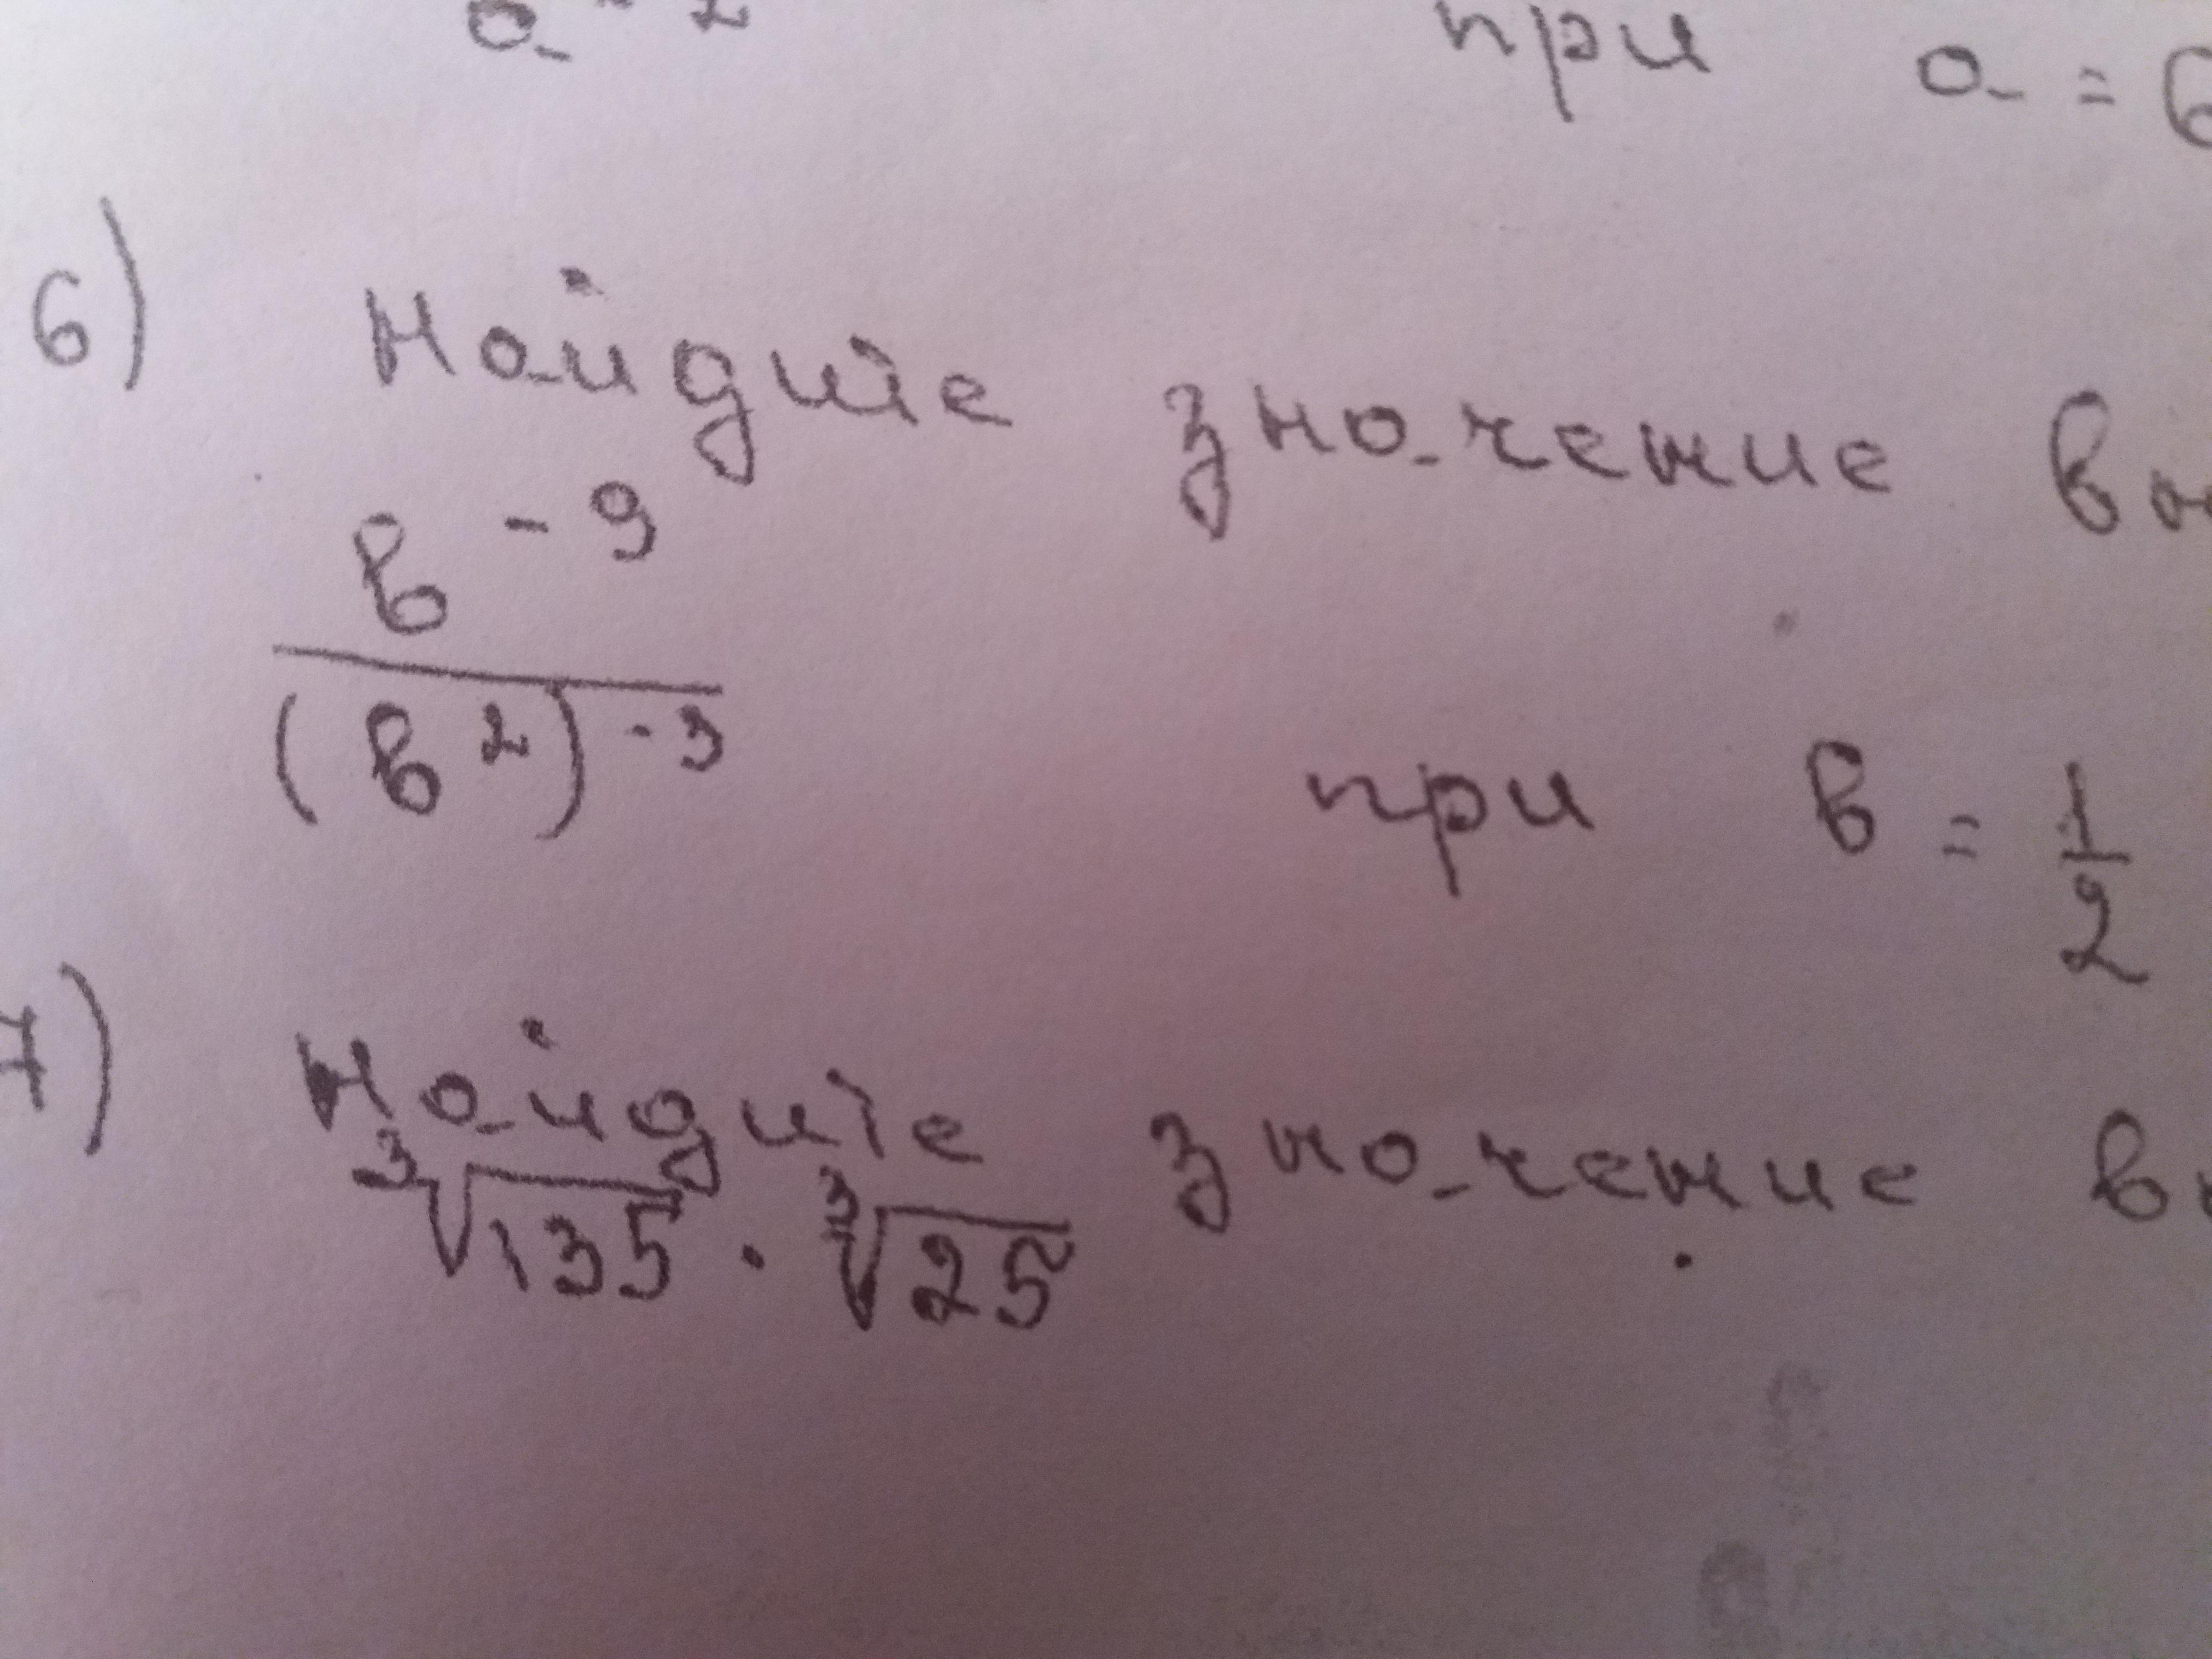 при a = 6
6) Найдите значение
в^-9
(в^2)^-3
при в = 1/2
7) Найдите значение
∛135 · ∛25